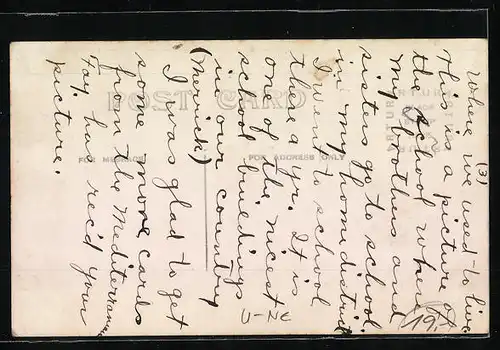 (3)
where we used to live
This is a picture
the school where
my brothers and
sisters go to school
in my home district
I went to school
there a yr. It is
one of the nicest
school buildings
in our county
(Merrick)
I was glad to get
some more cards
from the Mediterranean
Fay has rec'd your
picture.
19.
U-NE
POST CARD
FOR MESSAGE
FOR ADDRESS ONLY